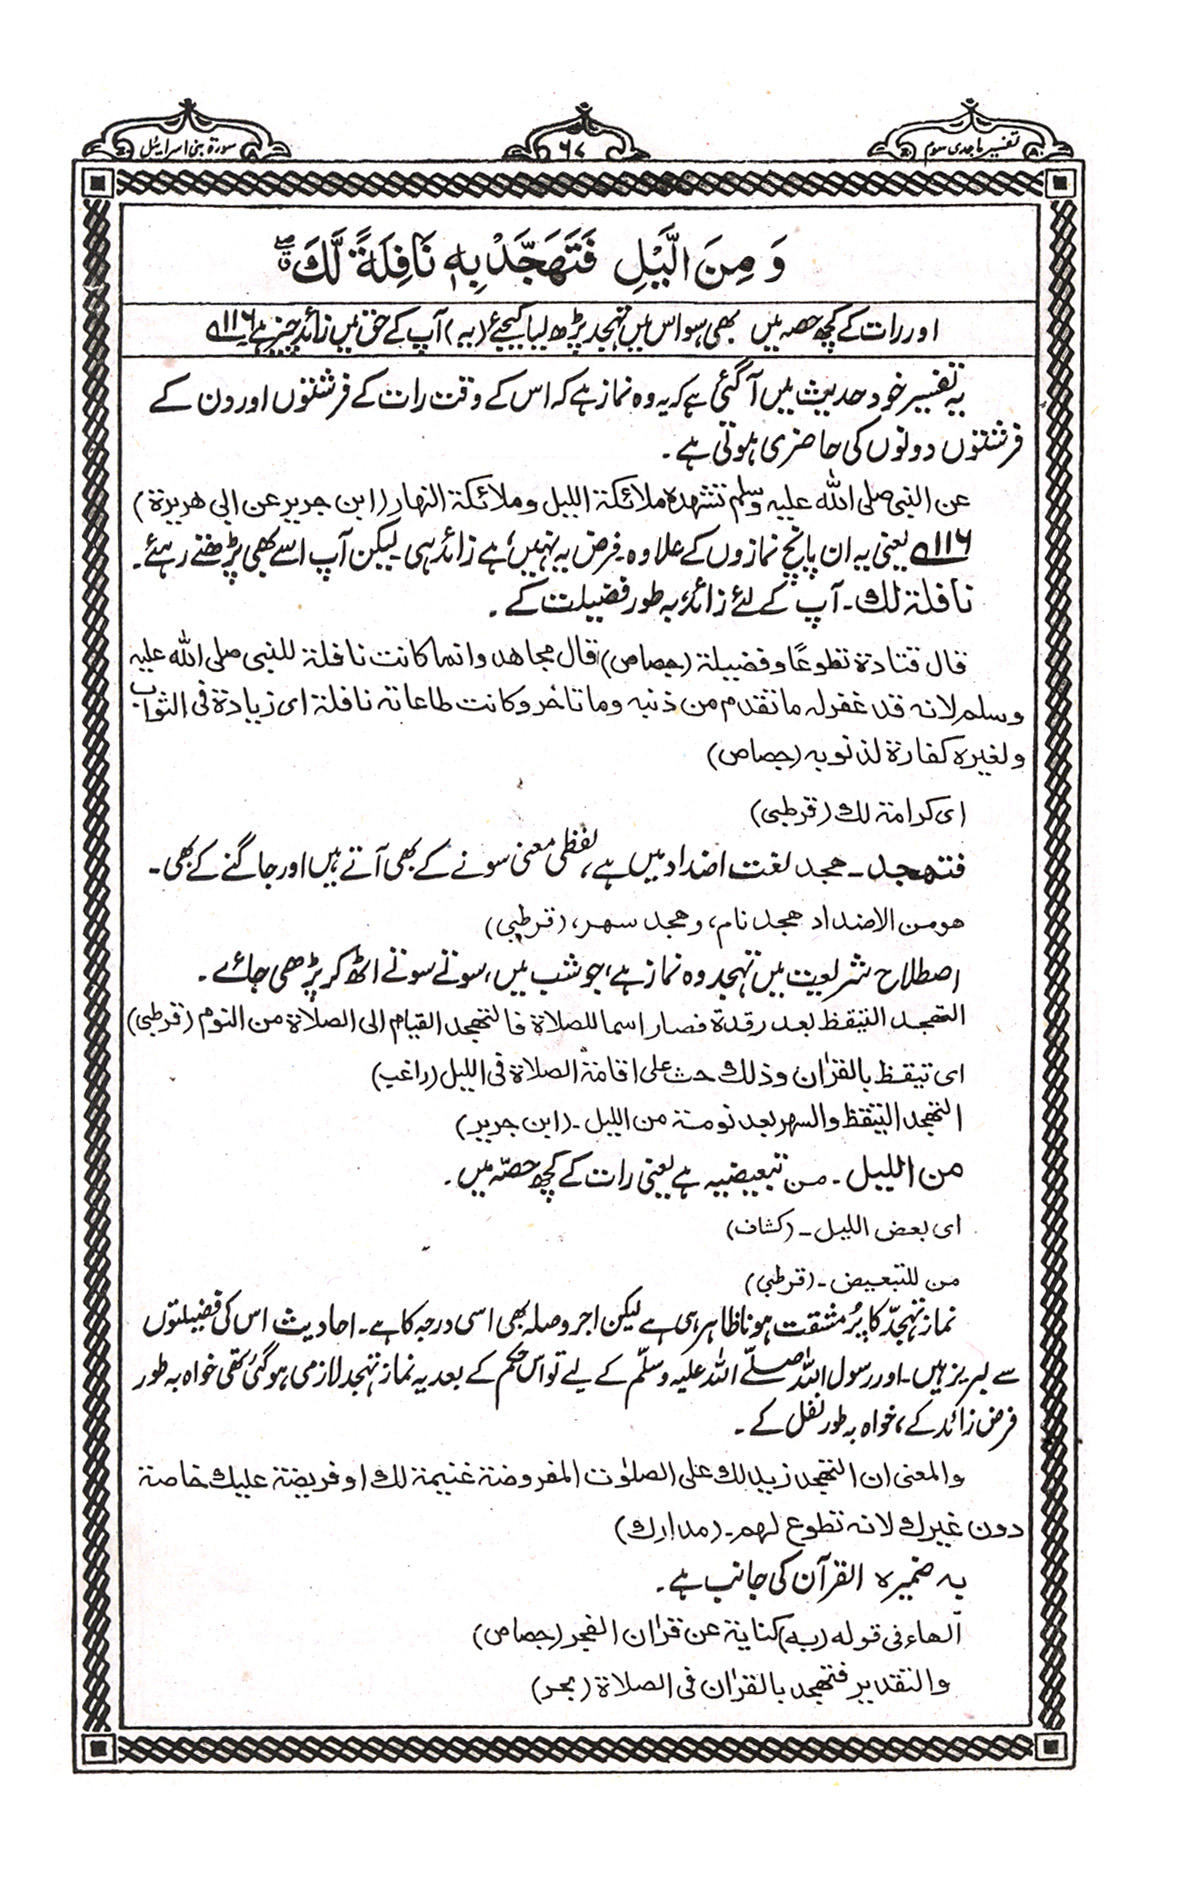 تفسیر ماجدی سوم
۶۷
سورۃ بنی اسرایٔل
وَ مِنَ الَّیْلِ فَتَهَجَّدْ بِهٖ نَافِلَةً لَّكَ ۖۗ
اور رات کے کچھ حصہ میں بھی سو اس میں تہجد پڑھ لیا کیجئے (یہ) آپ کے حق میں زائد چیز ہے ۱۱۶؎
یہ تفسیر خود حدیث میں آ گئی ہے کہ یہ وہ نماز ہے کہ اس کے وقت رات کے فرشتوں اور دن کے
فرشتوں دونوں کی حاضری ہوتی ہے ۔
عن النبی صلی اللہ علیہ وسلم تشهدہ ملائکۃ اللیل وملائکۃ النهار (ابن جریر عن ابی هریرۃ)
۱۱۶؎ یعنی یہ ان پانچ نمازوں کے علاوہ ۔ فرض یہ نہیں ہے زائد ہی ۔ لیکن آپ اسے بھی پڑھتے رہئے ۔
نافلۃ لك ۔ آپ کے لئے زائد، بہ طور فضیلت کے ۔
قال قتادۃ تطوعًا وفضیلۃ (جصاص) قال مجاهد وانما کانت نافلۃ للنبی صلی اللہ علیہ
وسلم لانہ قد غفرلہ ماتقدم من ذنبہ وما تاخر وکانت طاعاتہ نافلۃ ای زیادۃ فی الثواب
ولغیرہ کفارۃ لذنوبہ (جصاص)
ای کرامۃ لك (قرطبی)
فتهجد ۔ هجد لغت اضداد میں ہے، لفظی معنی سونے کے بھی آتے ہیں اور جاگنے کے بھی ۔
هو من الاضداد هجد نام، وهجد سهر، (قرطبی)
اصطلاح شریعت میں تہجد وہ نماز ہے، جو شب میں، سوتے سوتے اٹھ کر پڑھی جائے ۔
التهجد التیقظ بعد رقدۃ فصار اسما للصلاۃ فالتهجد القیام الی الصلاۃ من النوم (قرطبی)
ای تیقظ بالقراٰن وذلك حث علی اقامۃ الصلاۃ فی اللیل (راغب)
التهجد التیقظ والسهر بعد نومۃ من اللیل ۔ (ابن جریر)
من اللیل ۔ من تبعیضیہ ہے یعنی رات کے کچھ حصّہ میں ۔
ای بعض اللیل ۔ (کشاف)
من للتبعیض ۔ (قرطبی)
نماز تہجّد کا پُر مشقت ہونا ظاہر ہی ہے لیکن اجر و صلہ بھی اسی درجہ کا ہے ۔ احادیث اس کی فضیلتوں
سے لبریز ہیں ۔ اور رسول اللہ صلے اللہ علیہ وسلّم کے لیے تو اس حکم کے بعد یہ نماز تہجد لازمی ہو گئی تھی خواہ بہ طور
فرض زائد کے، خواہ بہ طور نفل کے ۔
والمعنی ان التهجد زید لك علی الصلوٰت المفروضۃ غنیمۃ لك او فریضۃ علیك خاصۃ
دون غیرك لانہ تطوع لهم ۔ (مدارك)
بہ ضمیر ہ القرآن کی جانب ہے ۔
الهاء فی قولہ (بہ) کنایۃ عن قراٰن الفجر (جصاص)
والتقدیر فتهجد بالقراٰن فی الصلاۃ (بحر)